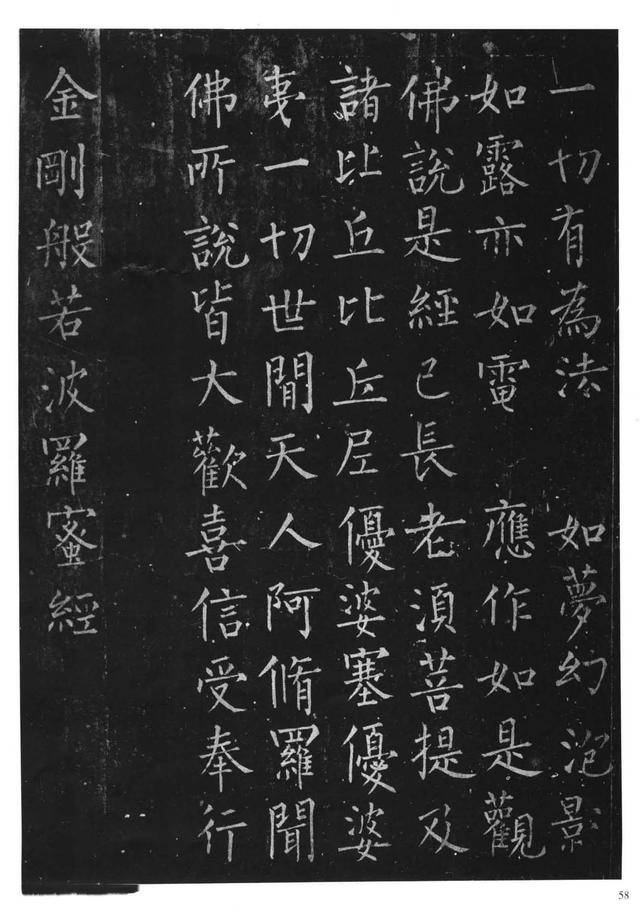 一切有為法 如夢幻泡影
如露亦如電 應作如是觀
佛說是經已長老須菩提及
諸比丘比丘尼優婆塞優婆
夷一切世間天人阿脩羅聞
佛所說皆大歡喜信受奉行
金剛般若波羅蜜經
58